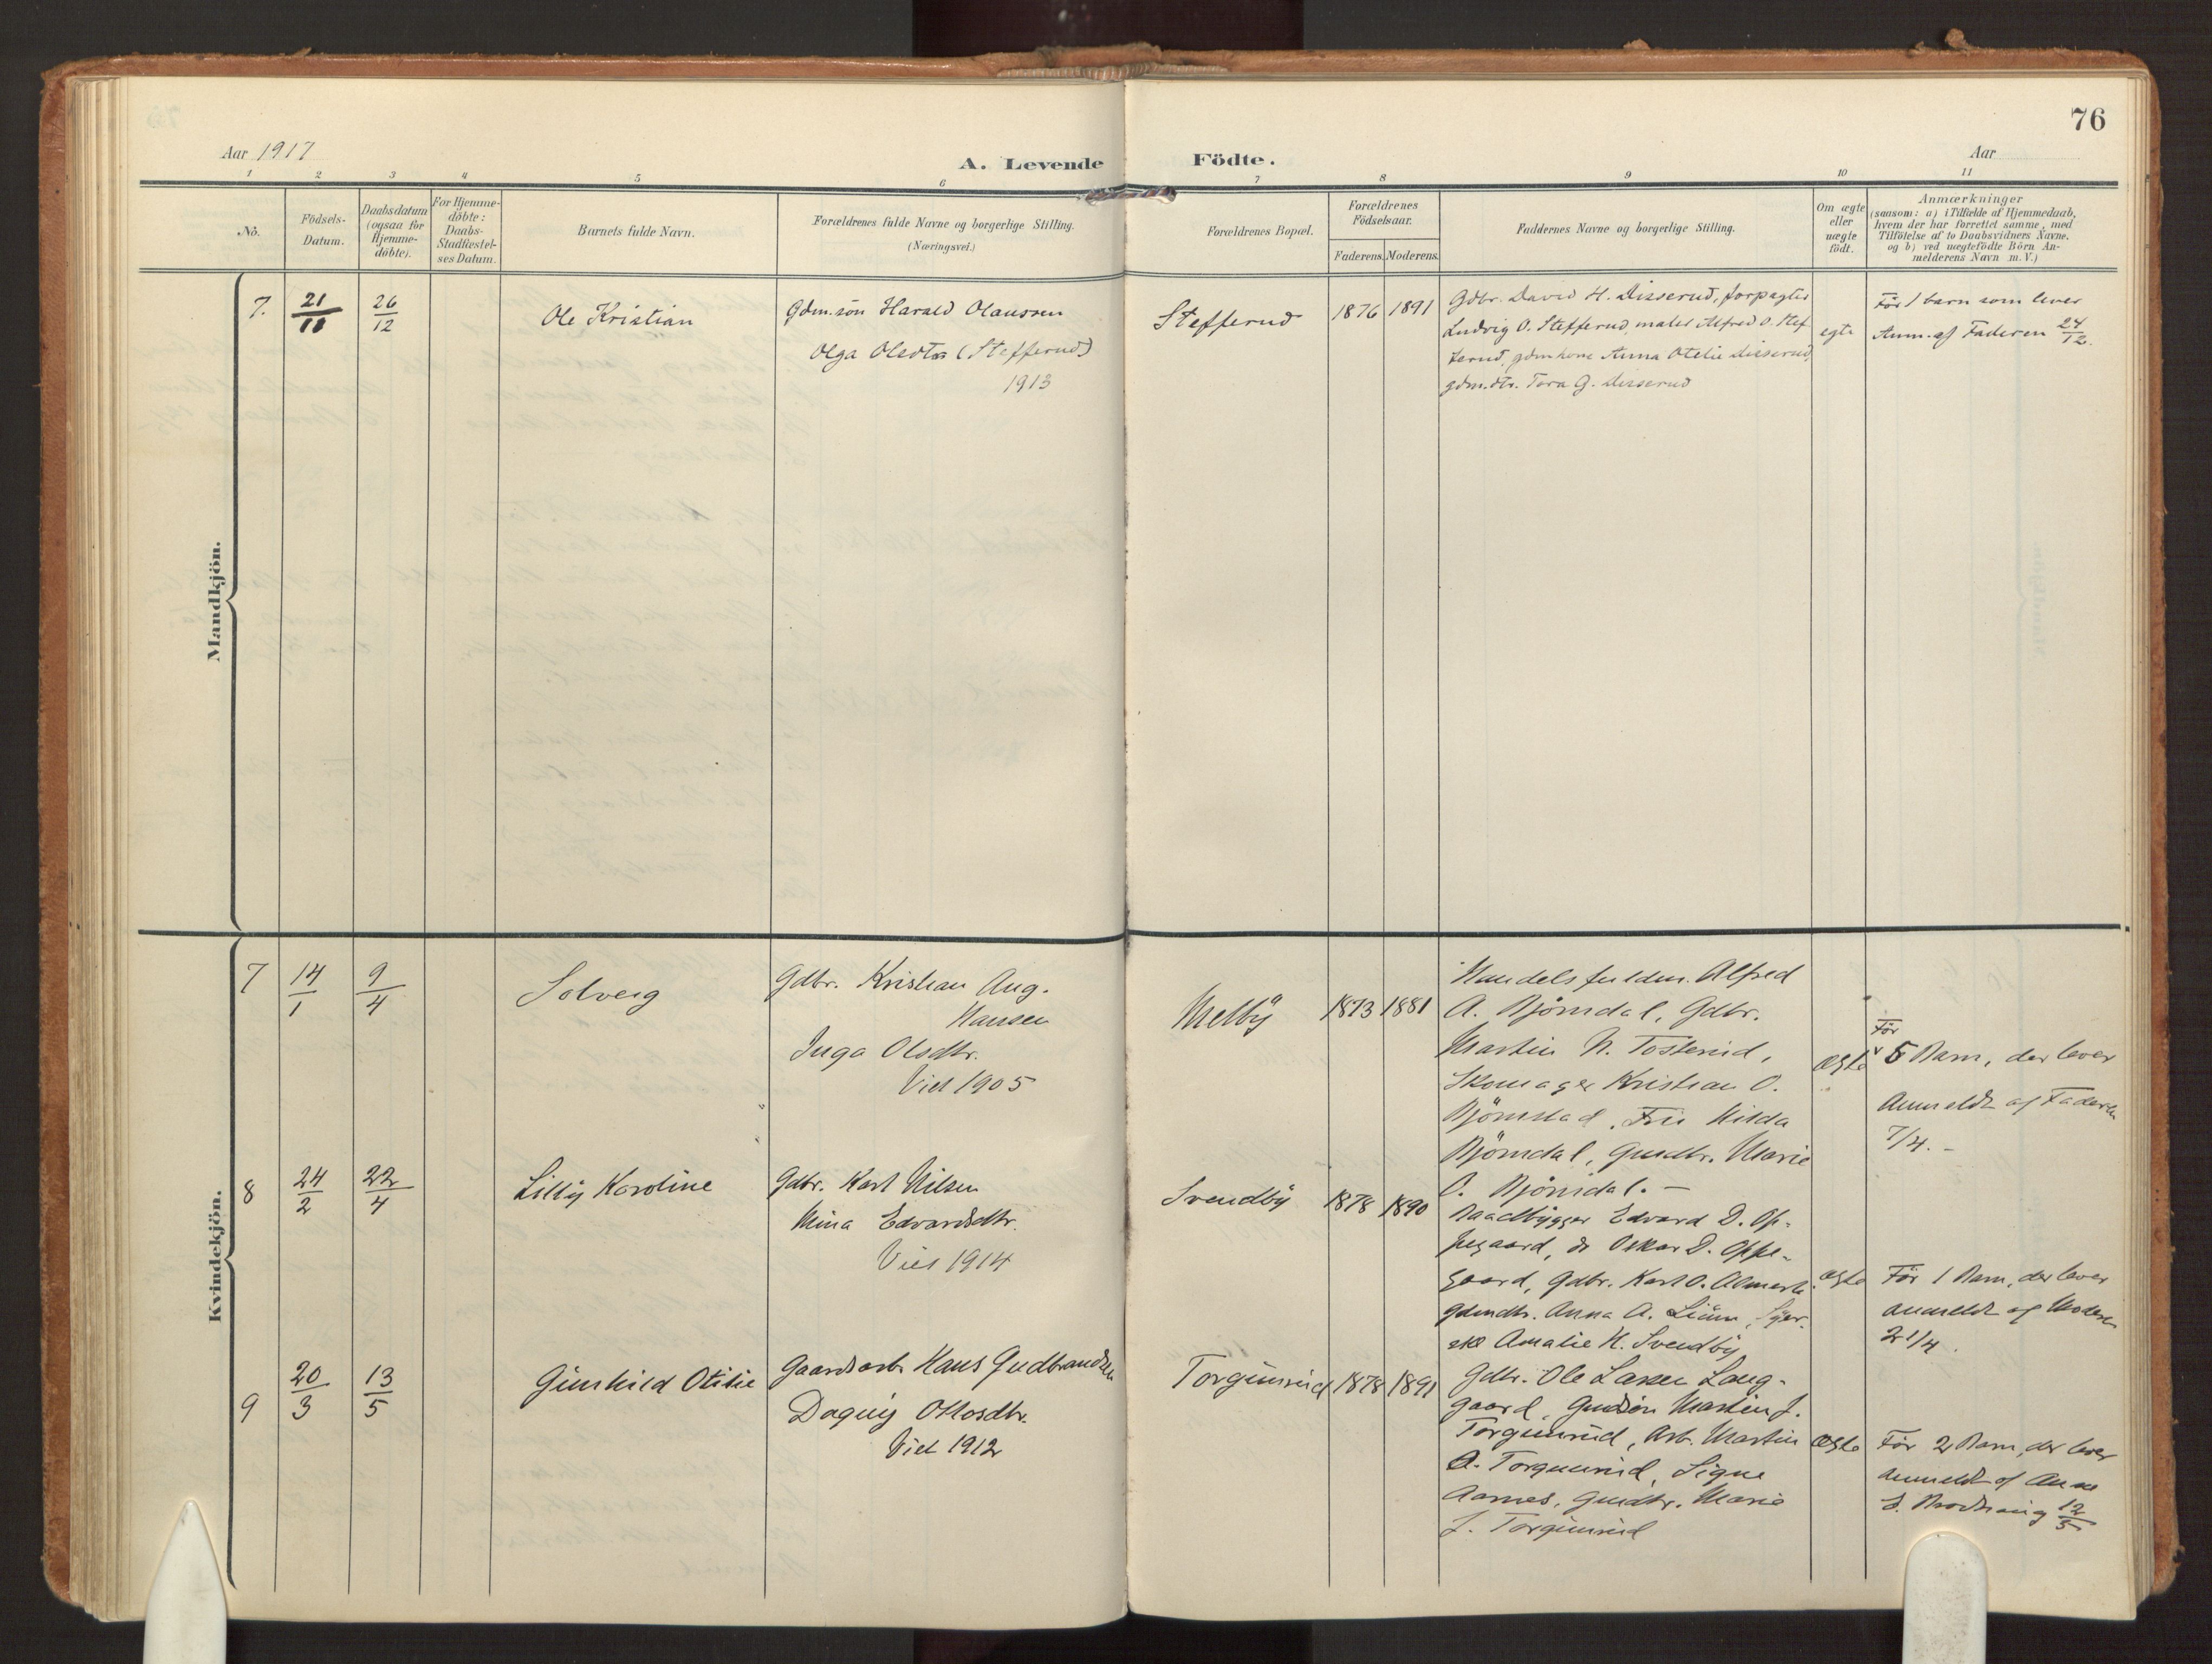 76
Aar 1917
A. Levende Födte.
Aar
1 2 3 4 5 6 7 8 9 10 11
Nò.
Födsels-
Datum.
Daabsdatum
(ogsaa for
Hjemme-
döbte).
For Hjemme-
döbte:
Daabs-
Stadfæstel-
ses Datum.
Barnets fulde Navn.
Forældrenes fulde Navne og borgerlige Stilling.
(Næringsvei.)
Forældrenes Bopæl.
Forældrenes
Födselsaar.
Faderens. Moderens.
Faddernes Navne og borgerlige Stilling.
Om ægte
eller
uægte
födt.
Anmærkninger
(saasom: a) i Tilfælde af Hjemmedaab,
hvem der har forrettet samme, med
Tilföielse af to Daabsvidners Navne,
og b) ved uægtefödte Börn An-
melderens Navn m. V.)
Mandkjön.
7. 21/11 26/12
Ole Kristian
Gdm.sön Harald Olaussen
Olga Olsdtr (Stefferud)
1913
Stefferud
1876 1891
Gdbr. David H. Disserud, forpagter
Ludvig O. Stefferud, maler Alfred O. Stef
ferud, gdmkone Anna Otelie Disserud,
gdm.dtr. Tora G. Disserud
egte
Før 1 barn som lever
Anm. af Faderen 24/12.
Kvindekjön.
7 14/1 9/4
Solveig
Gdbr. Kristian Aug.
Hansen
Inga Olsdtr.
Viet 1905
Melby
1873 1881
Handelsfuldm. Alfred
A. Bjørndal, Gdbr.
Martin N. Tosterud,
Skomager Kristian O.
Bjørnstad, Fru Hilda
Bjørndal, Gmdtr. Marie
O. Bjørndal. —
Ægte
Før
5 Barn, der lever
Anmeldt af Faderen
7/4. -
8 24/2 22/4
Lilly Karoline
Gdbr. Karl Nilsen
Mina Edvardsdtr.
Viet 1914
Svendby
1878 1890
Baadbygger Edvard D. Op-
pegaard, do Oskar D. Oppe-
gaard, Gdbr. Karl O.
Gdmdtr. Anna A.
ske Amalie H. Svendby
Ægte
Før 1 Barn, der lever
anmeldt af Moderen
21/4.
9 20/3 13/5
Gunhild Otilie
Gaardsarb. Hans Gudbrandsen
Dagny Ottosdtr.
Viet 1912
Torgunrud
1878 1891
Gdbr. Ole Larsen Laug-
gaard, Gmdsøn Martin J.
Torgunrud, Arb. Martin
A. Torgunrud, Signe
Aarnes, Gmdtr. Marie
J. Torgunrud
Ægte
Før 2 Barn, der lever
anmeldt af
12/5